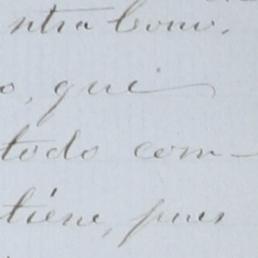 ntra Conv.
o, que
todo com-
tiene, pues